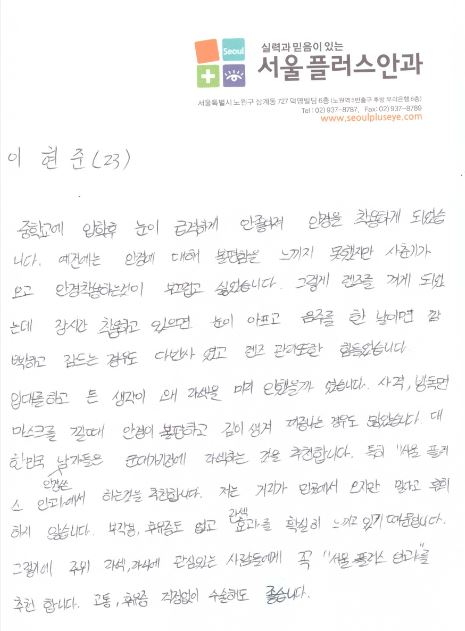 Seoul
실력과 믿음이 있는
서울플러스안과
서울특별시 노원구 상계동 727 덕영빌딩 6층 (노원역 5번출구 후방 우리은행 6층)
Tel : 02) 937-8787, Fax : 02) 937-8789
www.seoulpluseye.com
이 현준 (23)
중학교에 입학후 눈이 급격하게 안좋아져 안경을 착용하게 되었습
니다. 예전에는 안경에 대해 불편함을 느끼지 못했지만 사춘기가
오고 안경착용하는것이 부끄럽고 싫었습니다. 그렇게 렌즈를 끼게 되었
는데 장시간 착용하고 있으면 눈이 아프고 음주를 한 날이면 깜
박하고 잠드는 경우도 다반사 였고 렌즈 관리또한 힘들었습니다.
입대를하고 든 생각이 왜 라식을 미리 안했을까 였습니다. 사격, 방독면
마스크를 낄때 안경이 불편하고 김이 생겨 벗는 경우도 많았습니다 대
한민국 안경쓴 남자들은 군대가기전에 라식하는 것을 추천합니다. 특히 "서울 플러
스 안과"에서 하는것을 추천합니다. 저는 거리가 먼곳에서 오지만 말하고 후회
하지 않습니다. 부작용, 후유증도 없고 라식 효과를 확실히 느끼고 있기 때문입니다.
그렇기에 주위 라식, 라섹에 관심있는 사람들에게 꼭 "서울 플러스 안과"를
추천 합니다. 고통, 후유증 걱정없이 수술해도 좋습니다.